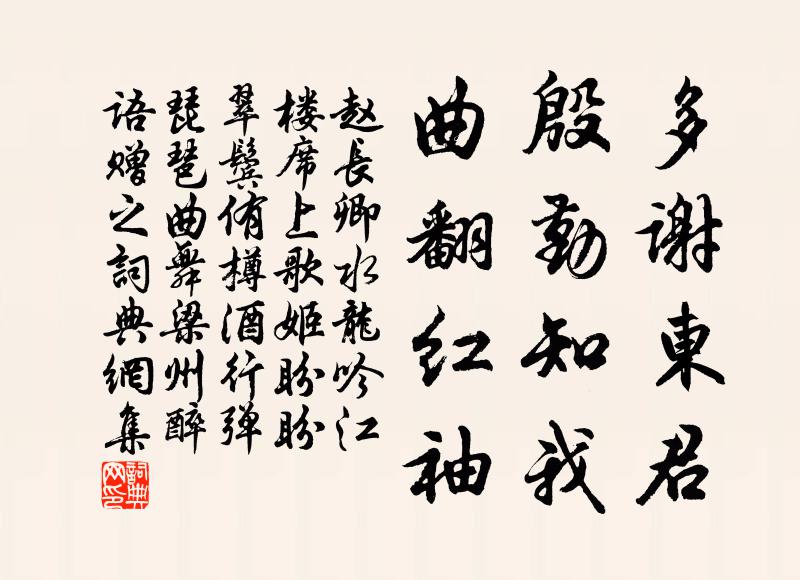 多谢東君
殷勤知我
曲翻红袖
赵長卿水龍吟江
楼席上歌姬盼盼
翠鬓侑樽酒行弹
琵琶曲舞梁州醉
语赠之詞典網集
詞典网印